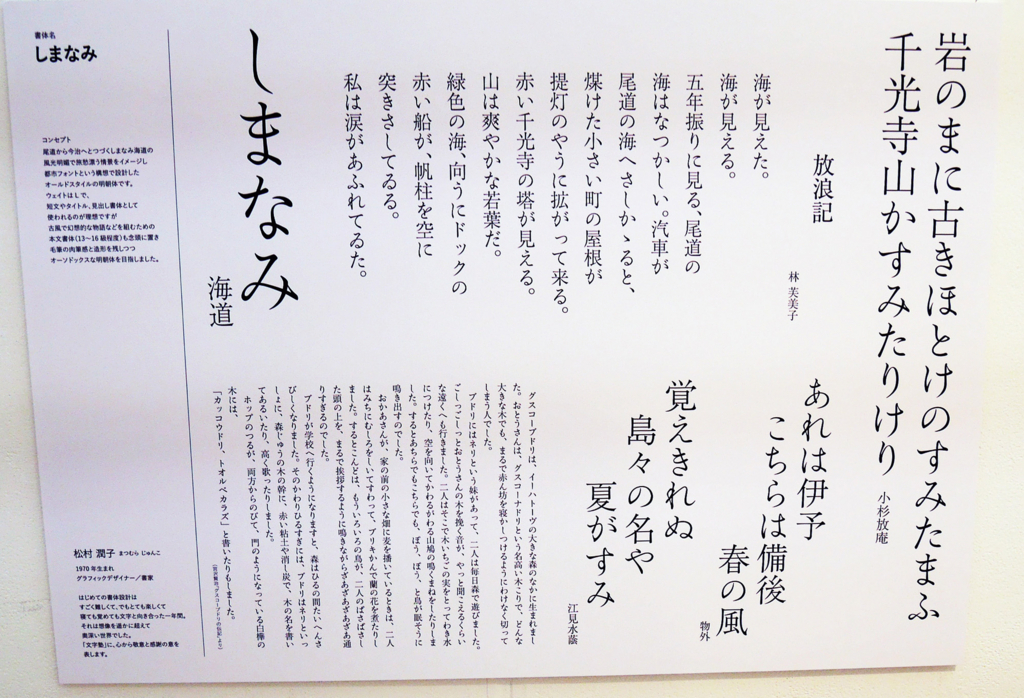 岩のまに古きほとけのすみたまふ
千光寺山かすみたりけり
小杉放庵
放浪記
林 芙美子
海が見えた。
海が見える。
五年振りに見る、尾道の
海はなつかしい。汽車が
尾道の海へさしかゝると、
煤けた小さい町の屋根が
提灯のやうに拡がって来る。
赤い千光寺の塔が見える。
山は爽やかな若葉だ。
緑色の海、向うにドックの
赤い船が、帆柱を空に
突きさしてゐる。
私は涙があふれてゐた。
あれは伊予
こちらは備後
春の風
物外
覚えきれぬ
島々の名や
夏がすみ
江見水蔭
しまなみ
海道
グスコーブドリは、イーハトーヴの大きな森のなかに生まれまし
た。おとうさんは、グスコーナドリという名高い木こりで、どんな
大きな木でも、まるで赤ん坊を寝かしつけるようにわけなく切って
しまう人でした。
ブドリにはネリという妹があって、二人は毎日森で遊びました。
ごしっごしっとおとうさんの木を挽く音が、やっと聞こえるくらい
な遠くへも行きました。二人はそこで木いちごの実をとってわき水
につけたり、空を向いてかわるがわる山鳩の鳴くまねをしたりしま
した。するとあちらでもこちらでも、ぽう、ぽう、と鳥が眠そうに
鳴き出すのでした。
おかあさんが、家の前の小さな畑に麦を播いているときは、二人
はみちにむしろをしいてすわって、ブリキかんで蘭の花を煮たりし
ました。するとこんどは、もういろいろの鳥が、二人のぱさぱさし
た頭の上を、まるで挨拶するように鳴きながらざあざあざあざあ通
りすぎるのでした。
ブドリが学校へ行くようになりますと、森はひるの間たいへんさ
びしくなりました。そのかわりひるすぎには、ブドリはネリといっ
しょに、森じゅうの木の幹に、赤い粘土や消し炭で、木の名を書い
てあるいたり、高く歌ったりしました。
ホップのつるが、両方からのびて、門のようになっている白樺の
木には、
「カッコウドリ、トオルベカラズ」と書いたりもしました。
（宮沢賢治『グスコーブドリの伝記』より）
書体名
しまなみ
コンセプト
尾道から今治へとつづくしまなみ海道の
風光明媚で旅愁漂う情景をイメージし
都市フォントという構想で設計した
オールドスタイルの明朝体です。
ウェイトは L で、
短文やタイトル、見出し書体として
使われるのが理想ですが
古風で幻想的な物語などを組むための
本文書体(13〜16 級程度)も念頭に置き
毛筆の肉筆感と造形を残しつつ
オーソドックスな明朝体を目指しました。
松村 潤子 まつむら じゅんこ
1970 年生まれ
グラフィックデザイナー／書家
はじめての書体設計は
すごく難しくて、でもとても楽しくて
寝ても覚めても文字と向き合った一年間。
それは想像を遥かに超えて
奥深い世界でした。
「文字塾」に、心から敬意と感謝の意を
表します。